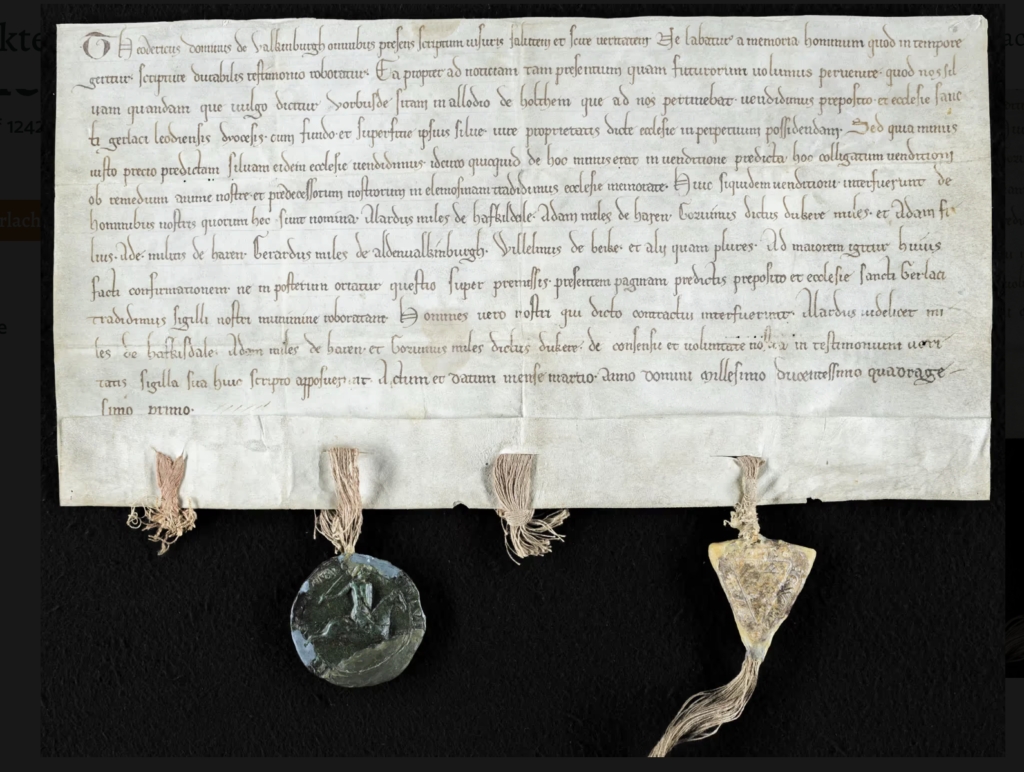 Theodericus dominus de Valkinburgh omnibus presens scriptum uisuris salutem et scire ueritatem Ne labatur a memoria hominum quod in tempore
geritur scripture durabilis testimonio roboratur. Ea propter ad noticiam tam presentium quam futurorum uolumus peruenire. quod nos sil
uam quandam que uulgo dicitur vorbusde sitam in allodio de holthem que ad nos pertinebat. uendidimus preposito et ecclesie sanc
ti gerlaci leodiensis dyocesis. cum fundo et superficie ipsius silue. iure proprietatis dicte ecclesie in perpetuum possidendam. Sed quia minus
iusto precio predictam siluam eidem ecclesie uendidimus. ideirco quicquid de hoc minus erat in uenditione predicta. hoc colligatum uenditioni
ob remedium anime nostre et predecessorum nostrorum in elemosinam tradidimus ecclesie memorate. Huic siquidem uenditioni interfuerunt de
hominibus nostris quorum hec sunt nomina. Alardus miles de haskisdale. Adam miles de haren. Gozuinus dictus dukere miles. et Adam fi
lius. Ade. militis de haren. Gerardus miles de aldenualkinburgh. Willelmus de beike. et alij quam plures. Ad maiorem igitur huius
facti confirmationem ne in posterum oriatur questio super premissis presentem paginam predictis preposito et ecclesie sancti Gerlaci
tradidimus sigilli nostri munimine roboratam. Homines uero nostri qui dicto contractui interfuerunt. Alardus uidelicet mi
les de haskisdale. Adam miles de haren. et Gozuinus miles dictus dukere. de consensu et uoluntate nostra in testimonium ueri
tatis sigilla sua huic scripto apposuerunt. Actum et datum mense martio. Anno domini Millesimo ducentessimo quadrage
simo primo.
1242
erlach